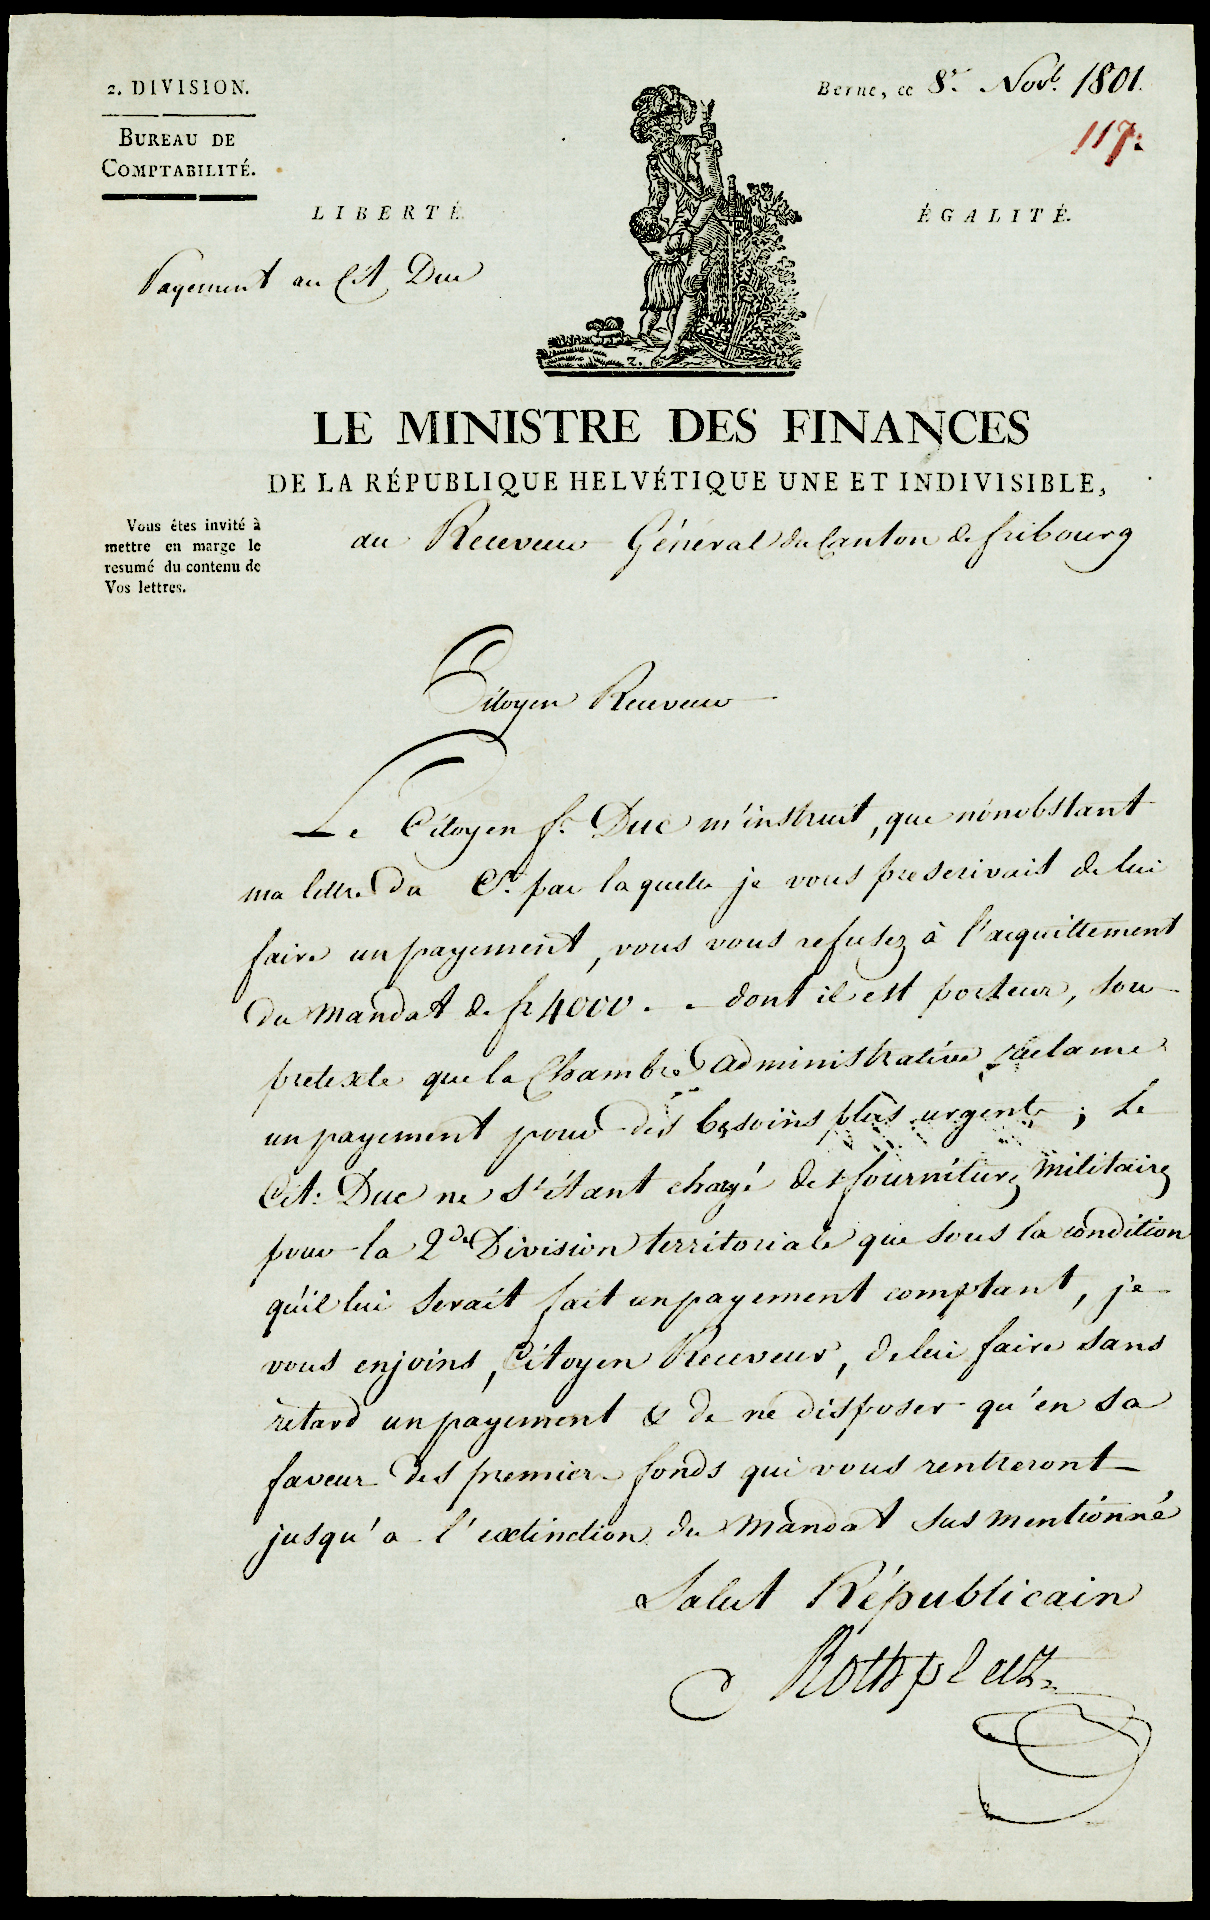 2. DIVISION.
BUREAU DE
COMPTABILITÉ.
Berne, ce 8.r Nov.b 1801.
117:
LIBERTÉ.
ÉGALITÉ.
Payement au Cit. Duc
2.
LE MINISTRE DES FINANCES
DE LA RÉPUBLIQUE HELVÉTIQUE UNE ET INDIVISIBLE,
Vous êtes invité à
mettre en marge le
resumé du contenu de
Vos lettres.
au Receveur Général du Canton de fribourg
Citoyen Receveur
Le Citoyen fr. Duc m'instruit, que nonobstant
ma lettre du par laquelle je vous prescrivait de lui
faire un payement, vous vous refusez à l'acquittement
du mandat de fr 4000. - dont il est porteur, sou
pretexte que la Chambre administrative reclame
un payement pour des besoins plus urgents; Le
Cit: Duc ne s'étant chargé des fournitures militaires
pour la 2de Division territoriale que sous la condition
qu'il lui serait fait un payement comptant, je
vous enjoins, Citoyen Receveur, de lui faire sans
retard un payement & de ne disposer qu'en sa
faveur des premiers fonds qui vous rentreront
jusqu'a l'extinction du mandat sus mentionné
Salut Républicain
Rothpletz